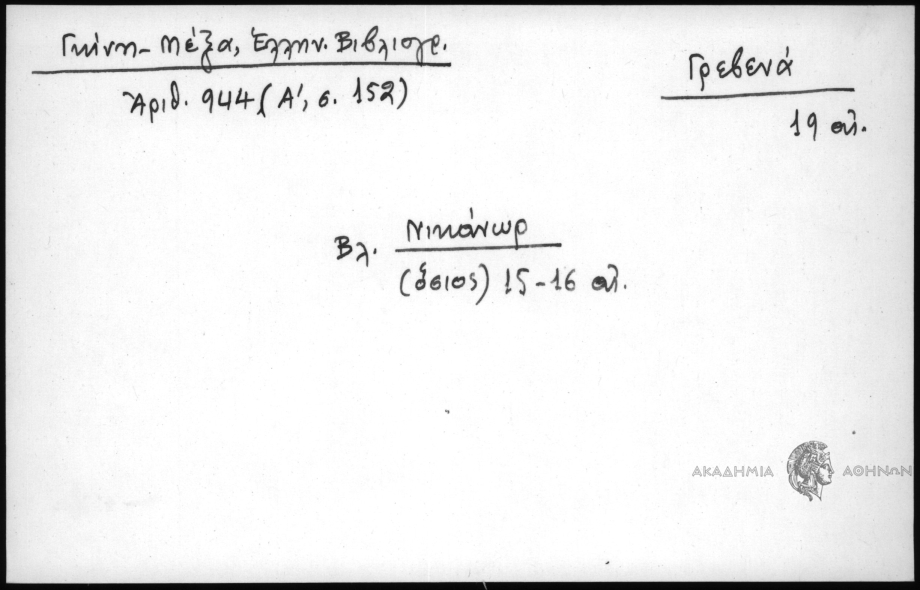 Γκίνη - Μέξα, Ἑλλην. Βιβλιογρ.
Ἀριθ. 944 (Α', σ. 152)
Γρεβενά
19 αἰ.
Βλ. Νικάνωρ
(ὅσιος) 15-16 αἰ.
ΑΚΑΔΗΜΙΑ ΑΘΗΝΩΝ